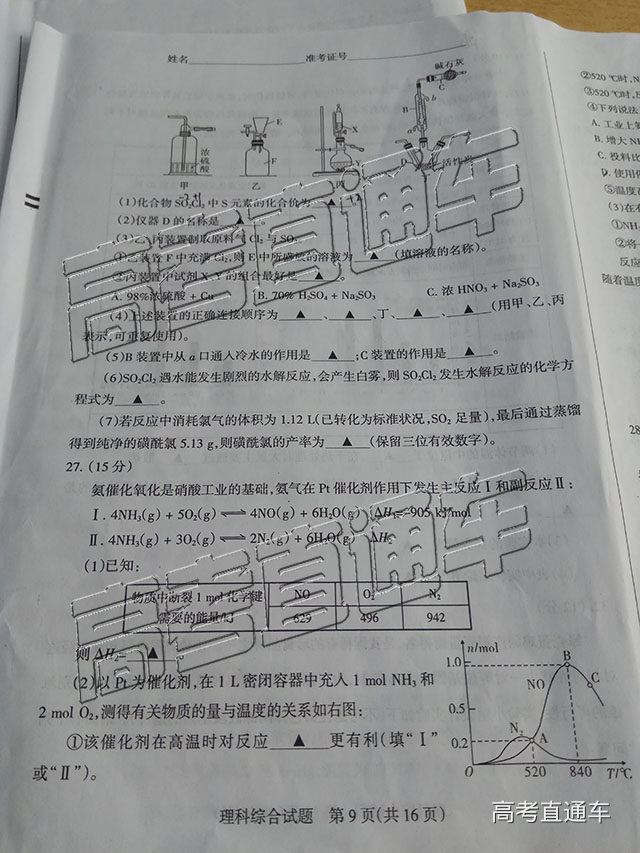 姓名 准考证号
碱石灰
C
B
b
a
E
X
浓硫酸
F
Y
D
活性炭
甲 乙 丙
(1)化合物SO₂Cl₂中S元素的化合价为 ▲ 。
(2)仪器D的名称是 ▲ 。
(3)乙、丙装置制取原料气Cl₂与SO₂
①乙装置F中充满Cl₂,则E中所盛放的溶液为 ▲ (填溶液的名称)。
②丙装置中试剂X、Y的组合最好是 ▲ 。
A. 98%浓硫酸 + Cu B. 70% H₂SO₄ + Na₂SO₃ C. 浓HNO₃ + Na₂SO₃
(4)上述装置的正确连接顺序为 ▲ 、 ▲ 、丁、 ▲ 、 ▲ (用甲、乙、丙
表示,可重复使用)。
(5)B装置中从a口通入冷水的作用是 ▲ ;C装置的作用是 ▲ 。
(6)SO₂Cl₂遇水能发生剧烈的水解反应,会产生白雾,则SO₂Cl₂发生水解反应的化学方
程式为 ▲ 。
(7)若反应中消耗氯气的体积为1.12 L(已转化为标准状况,SO₂足量),最后通过蒸馏
得到纯净的磺酰氯5.13 g,则磺酰氯的产率为 ▲ (保留三位有效数字)。
27. (15分)
氨催化氧化是硝酸工业的基础,氨气在Pt催化剂作用下发生主反应Ⅰ和副反应Ⅱ:
Ⅰ. 4NH₃(g) + 5O₂(g) ⇌ 4NO(g) + 6H₂O(g) ΔH₁=-905 kJ/mol
Ⅱ. 4NH₃(g) + 3O₂(g) ⇌ 2N₂(g) + 6H₂O(g) ΔH₂
(1)已知:
物质中断裂1 mol化学键需要的能量/kJ NO O₂ N₂
629 496 942
则ΔH₂= ▲ 。
(2)以Pt为催化剂,在1 L密闭容器中充入1 mol NH₃和
2 mol O₂,测得有关物质的量与温度的关系如右图:
①该催化剂在高温时对反应 ▲ 更有利(填“Ⅰ”
或“Ⅱ”)。
n/mol
1.0
0.5
0.2
B
NO
C
N₂
A
520 840 T/℃
理科综合试题 第9页(共16页)
②520 ℃时,N
③520℃时,
④下列说法
A. 工业上氨
B. 增大NH
C. 投料比
D. 使用催
⑤温度高
(3)在
①NH₃
②将一
反应
随着温度
28
高考直通车
高考直通车
高考直通车